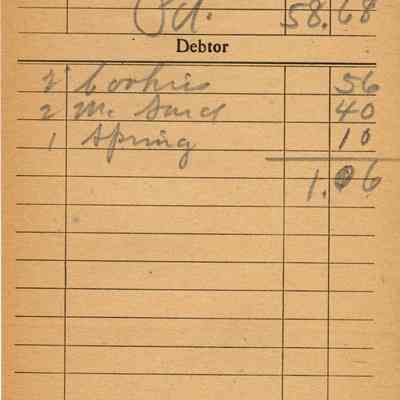 Pd. 58.68
Debtor
2 Cookies 56
2 M. 40
1 Spring 10
1.06